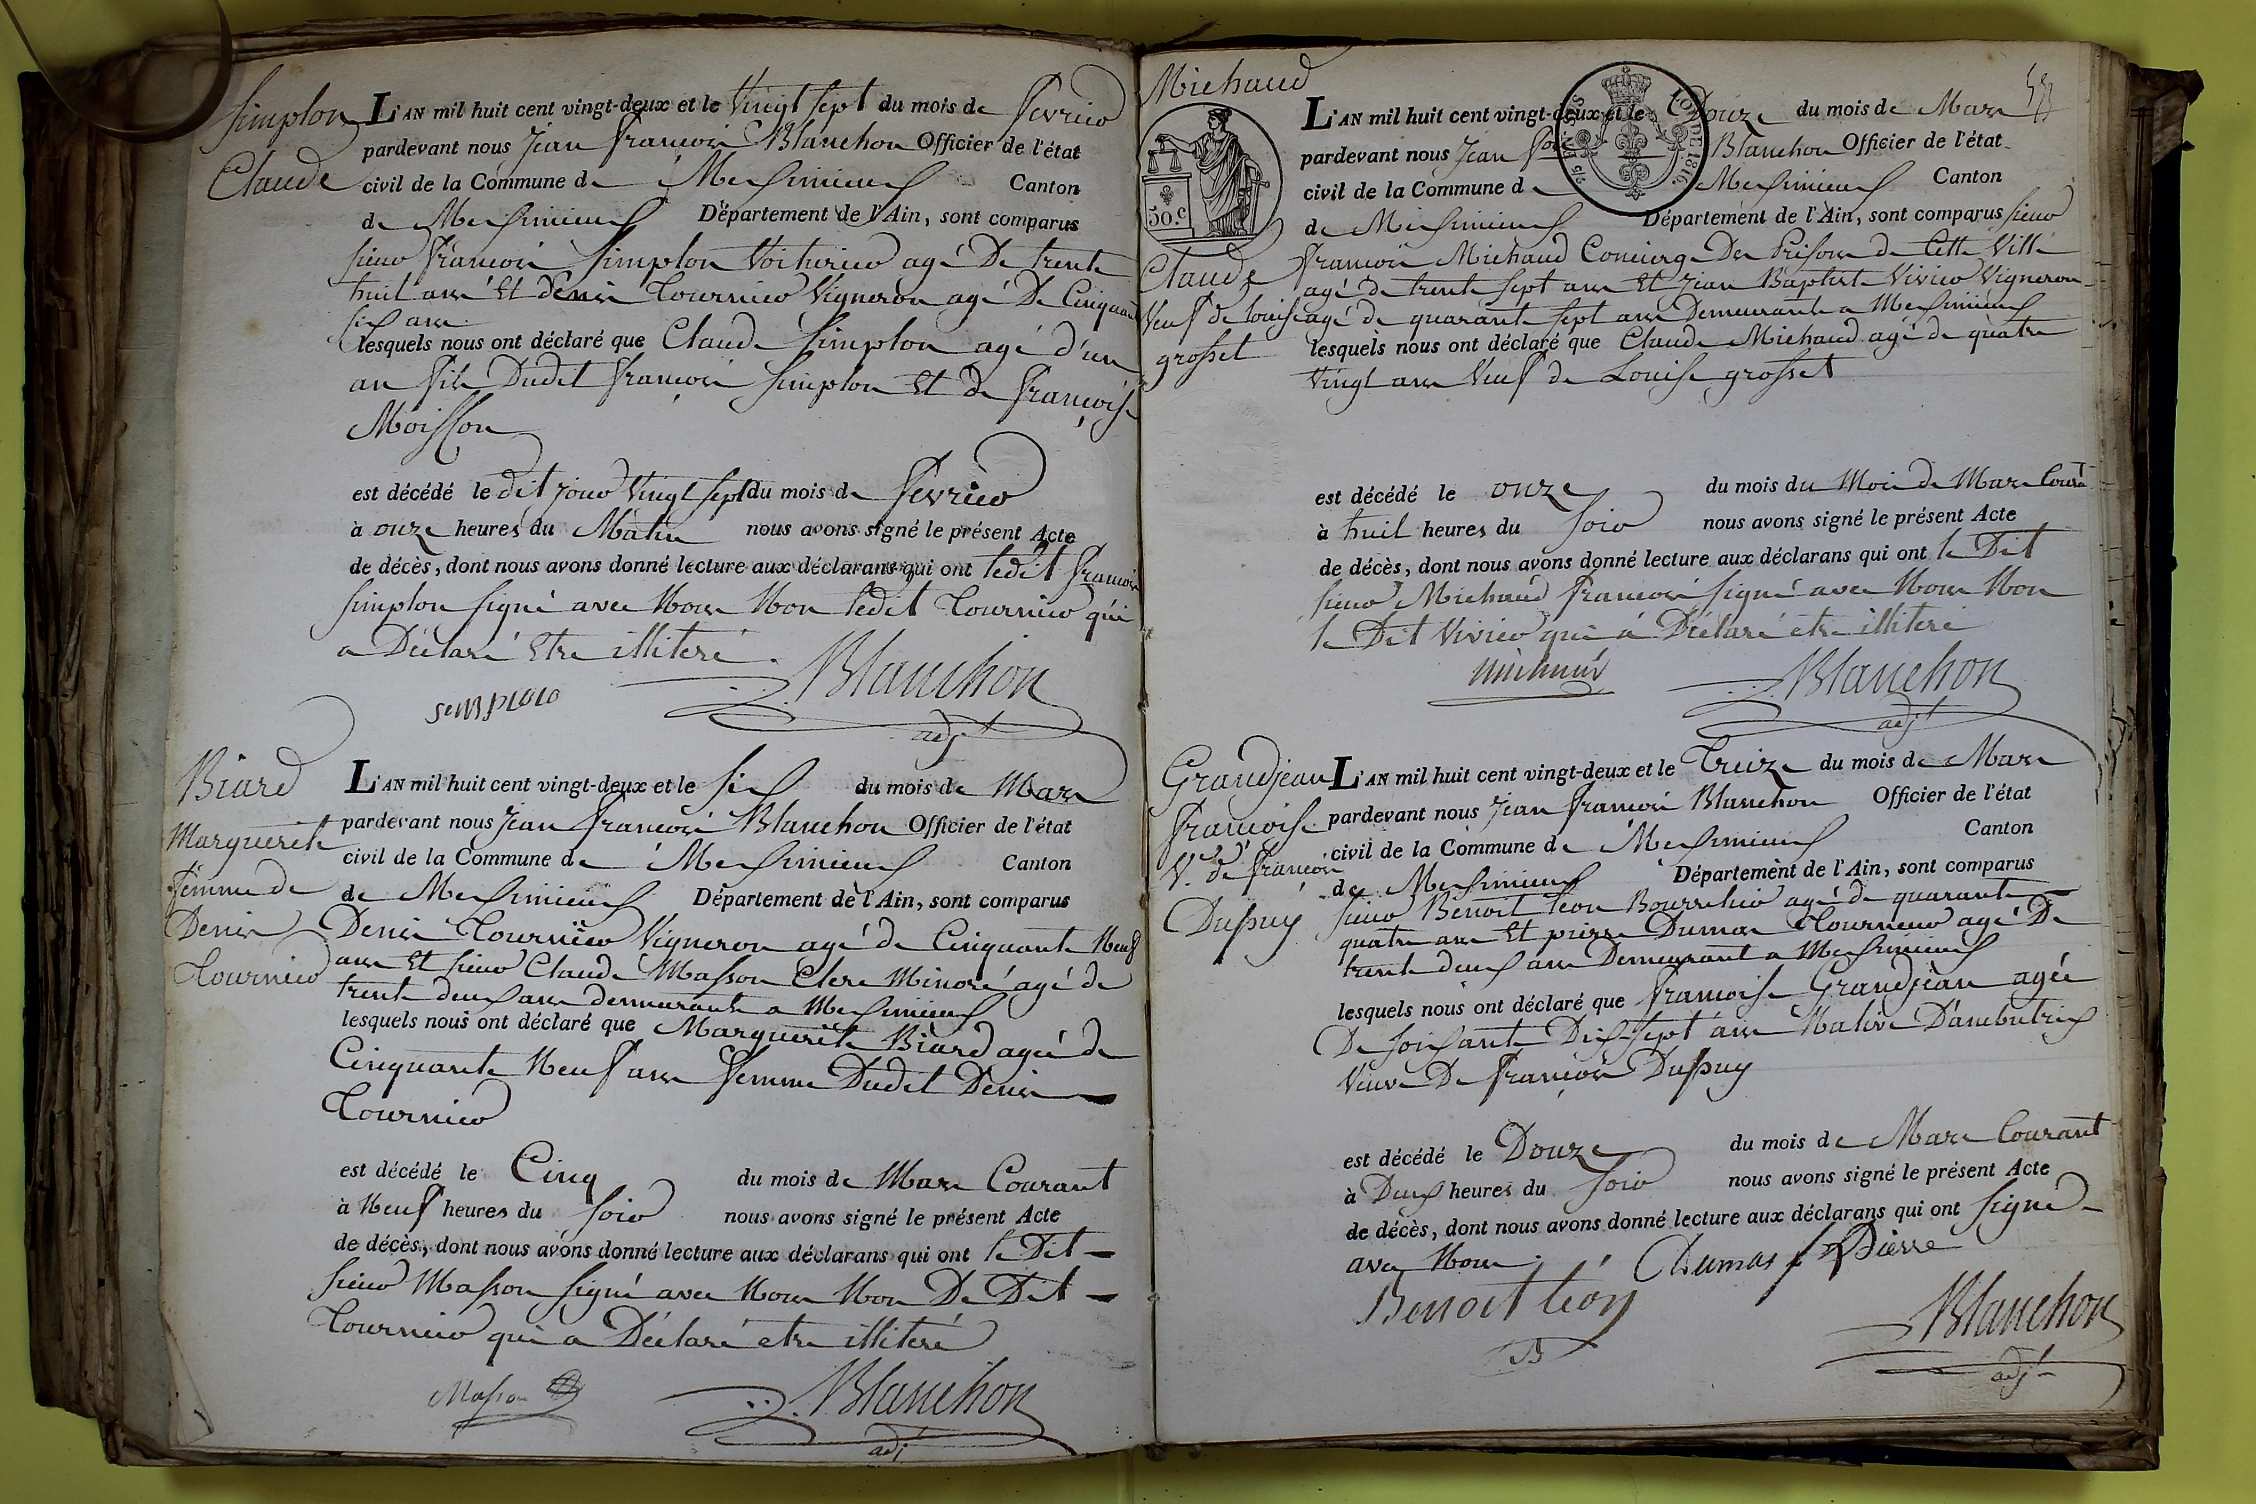 Simplon
Claude
L'AN mil huit cent vingt-deux et le Vingt sept du mois de fevrier
pardevant nous Jean francois Blanchon Officier de l'état
civil de la Commune de Meximieux Canton
de Meximieux Département de l'Ain, sont comparus
sieur francois Simplon Voiturier agé De trente
huit ans Et Denis Tournier Vigneron agé De Cinquante
six ans
lesquels nous ont déclaré que Claude Simplon agé d'un
an fils Dudit francois Simplon Et de françoise
Moisson
est décédé le dit jour Vingt sept du mois de fevrier
à onze heures du Matin nous avons signé le présent Acte
de décès, dont nous avons donné lecture aux déclarans qui ont ledit francois
Simplon signé avec Nous Non ledit Tournier qui
a Déclaré Etre illiteré
Blanchon
adjt
Biard
Marguerite
femme de
Denis
Tournier
L'AN mil huit cent vingt-deux et le six du mois de Mars
pardevant nous Jean francois Blanchon Officier de l'état
civil de la Commune de Meximieux Canton
de Meximieux Département de l'Ain, sont comparus
Denis Tournier Vigneron agé de Cinquante Neuf
ans Et sieur Claude Masson Clerc Minoré agé de
trente deux ans demeurants a Meximieux
lesquels nous ont déclaré que Marguerite Biard agée de
Cinquante Neuf ans femme Dudit Denis
Tournier
est décédé le Cinq du mois de Mars Courant
à Neuf heures du soir nous avons signé le présent Acte
de décès, dont nous avons donné lecture aux déclarans qui ont le Dit
sieur Masson signé avec Nous Non De Dit
Tournier qui a Déclaré etre illiteré
Masson
Blanchon
adj
Michaud
Claude
Veuf de Louise
grosset
50.c
LOI DE 1816
L'AN mil huit cent vingt-deux et le Douze du mois de Mars
pardevant nous Jean fois Blanchon Officier de l'état
civil de la Commune de Meximieux Canton
de Meximieux Département de l'Ain, sont comparus sieur
francois Michaud Concierge Des Prisons de Cette Ville
agé de trente sept ans Et Jean Baptiste Vivier Vigneron
agé de quarante sept ans Demeurants a Meximieux
lesquels nous ont déclaré que Claude Michaud agé de quatre
Vingt ans Veuf de Louise grosset
est décédé le onze du mois du Mois de Mars Courant
à huit heures du soir nous avons signé le présent Acte
de décès, dont nous avons donné lecture aux déclarans qui ont le Dit
sieur Michaud francois signé avec Nous Non
le Dit Vivier qui à Déclaré etre illiteré
Blanchon
adjt
Grandjean
francoise
Ve de francois
Dupuy
L'AN mil huit cent vingt-deux et le Treize du mois de Mars
pardevant nous Jean francois Blanchon Officier de l'état
civil de la Commune de Meximieux Canton
de Meximieux Département de l'Ain, sont comparus
sieur Benoit Léon Bourrelier agé de quarante
quatre ans Et pierre Dumas Tournier agé De
trente deux ans Demeurant a Meximieux
lesquels nous ont déclaré que francoise Grandjean agée
De soixante Dix-sept ans Native D'ambutrix
Veuve De françois Dupuy
est décédé le Douze du mois de Mars Courant
à Deux heures du soir nous avons signé le présent Acte
de décès, dont nous avons donné lecture aux déclarans qui ont signé
avec Nous
Dumas Pierre
Benoit léon
Blanchon
adj